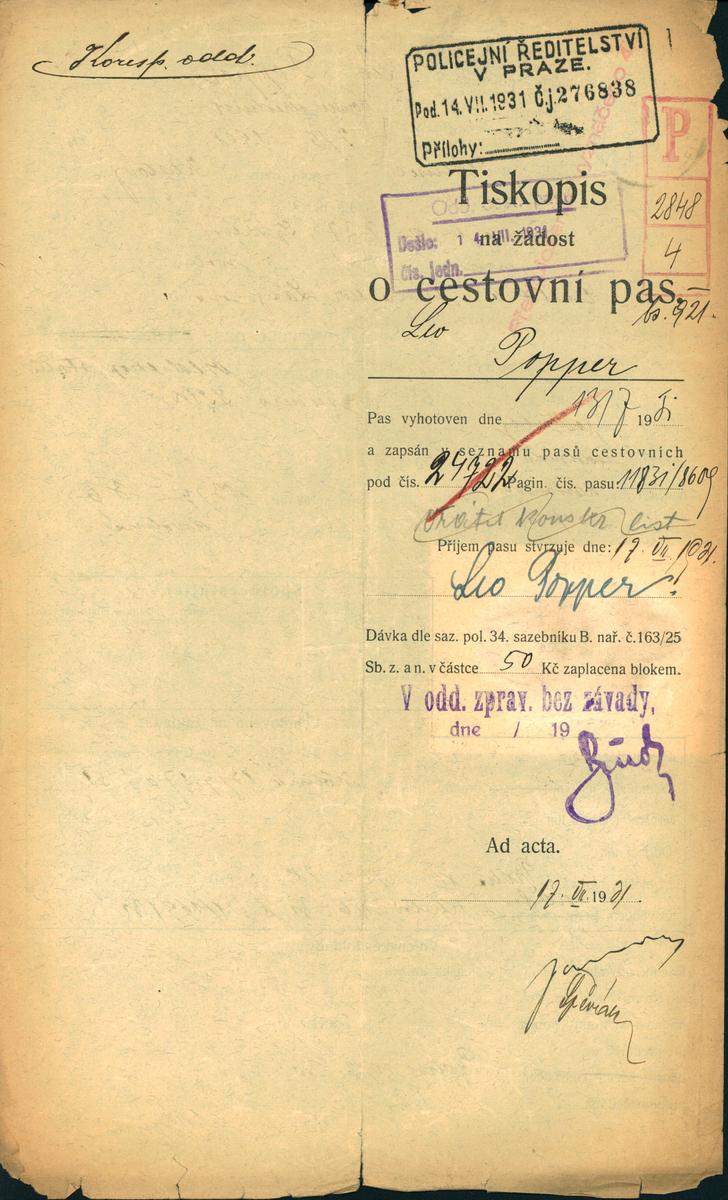 Koresp. odd.
POLICEJNÍ ŘEDITELSTVÍ
V PRAZE.
Pod. 14. VII. 1931 Č.j. 276838
Přílohy:
P
2848
4
Tiskopis
Došlo: 14. VII. 1931
na žádost
čís. jedn.
o cestovní pas.
Leo
Popper
Pas vyhotoven dne 13/7 19
a zapsán v seznamu pasů cestovních
pod čís. 24722 Pagin. čís. pasu
list
Příjem pasu stvrzuje dne: 17. VII. 1931.
Leo Popper
Dávka dle saz. pol. 34. sazebníku B. nař. č. 163/25
Sb. z. a n. v částce 50 Kč zaplacena blokem.
V odd. zprav. bez závady,
dne / 19
Ad acta.
17. VII. 1931.